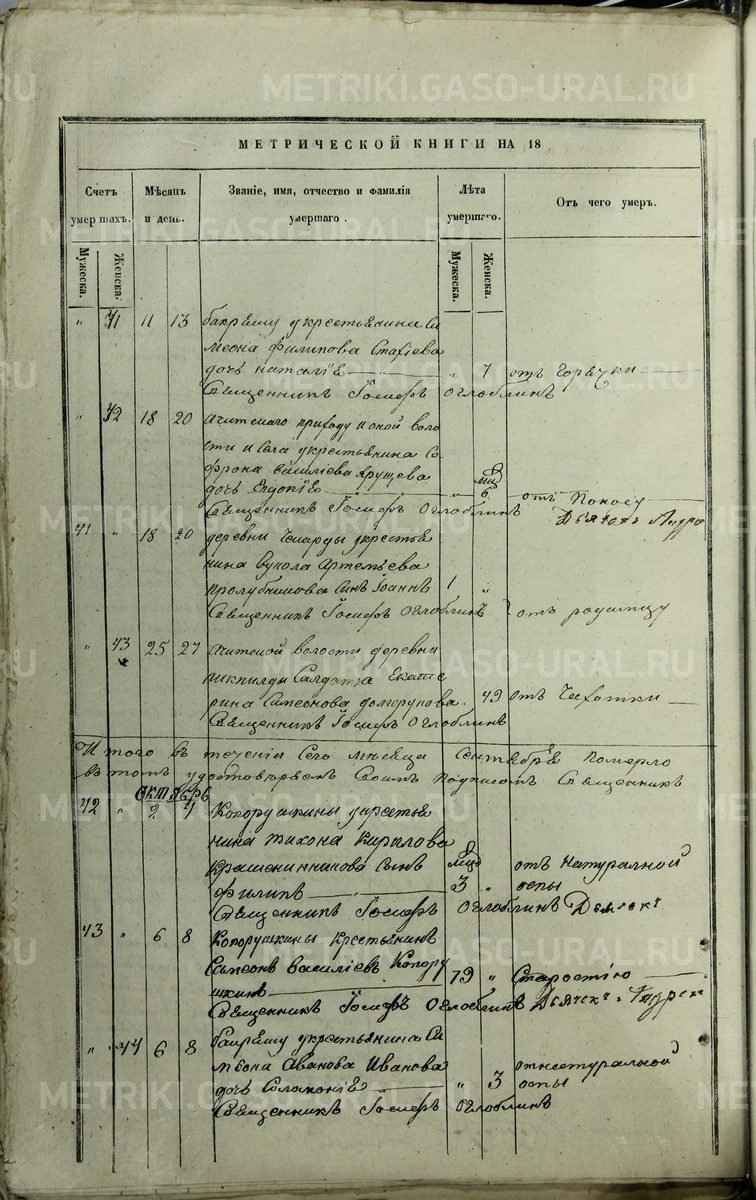 METRIKI.GASO-URAL.RU
МЕТРИЧЕСКОЙ КНИГИ НА 18
Счетъ умершихъ.
Мѣсяцъ и день.
Званіе, имя, отчество и фамилія умершаго.
Лѣта умершаго.
Отъ чего умеръ.
Мужеска.
Женска.
Мужеска.
Женска.
" 41 11 13 крестьянина Си
меона Филипова Стахіева
дочь Наталіѣ " 7 отъ горячки
Священникъ Іосифъ Оглоблинъ
" 42 18 20 Ачитскаго приходу и оной воло
сти и села у крестьянина Со
фрона Василіева Ярушева
дочь Евдокіѣ " 6 отъ поносу
Священникъ Іосифъ Оглоблинъ Дьячекъ Андре
41 " 18 20 деревни у крестья
нина Вукола Артемьева
сынъ Іоаннъ 1 "
Священникъ Іосифъ Оглоблинъ отъ родимцу
" 43 25 27 Ачитской волости деревни
Салдатка Екате
рина Симеонова 49 отъ чихотки
Священникъ Іосифъ Оглоблинъ
Итого въ теченіи сего мѣсяца Сентебрѣ померло
въ томъ удостовѣряемъ своимъ подписомъ Священникъ
Октябрь
42 " 2 4 Копорушкины у крестья
нина Тихона Кирилова
Крашенинникова сынъ отъ натуралной
Филипъ 3 " оспы
Священникъ Іосифъ Оглоблинъ Дьячекъ
43 " 6 8 Копорушкины крестьянинъ
Симеонъ Василіевъ Копору 79 " Старостію
шкинъ
Священникъ Іосифъ Оглоблинъ Дьячекъ Андреи
" 44 6 8 у крестьянина Си
меона Иванова
дочь Соломоніѣ " 3 отнатуралной оспы
Священникъ Іосифъ Оглоблинъ